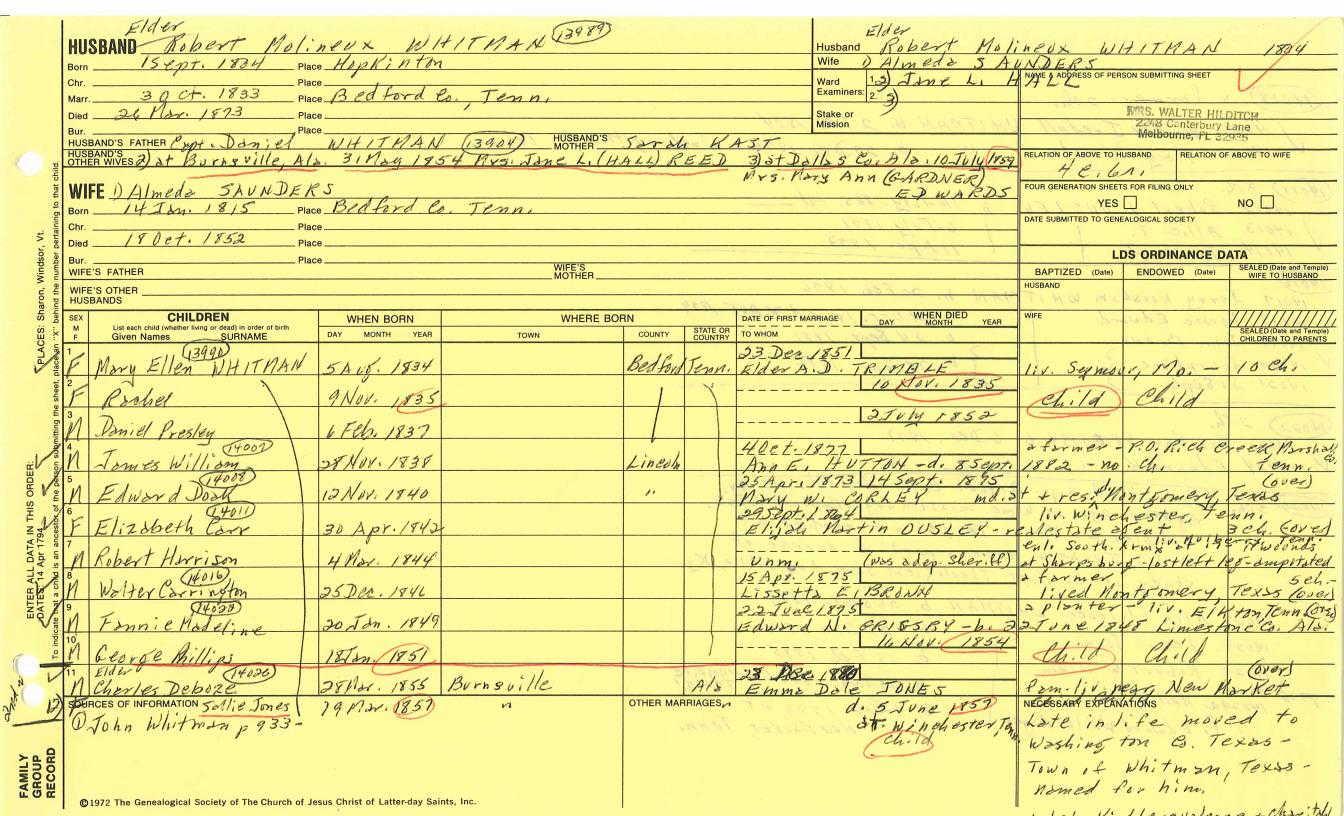 Elder
HUSBAND Robert Molineux WHITMAN 13989
Born 1 Sept. 1804 Place Hopkinton
Chr. Place
Marr. 3 Oct. 1833 Place Bedford Co., Tenn.
Died 26 Mar. 1873 Place
Bur. Place
HUSBAND'S FATHER Capt. Daniel WHITMAN 13904 HUSBAND'S MOTHER Sarah KAST
HUSBAND'S OTHER WIVES 2) at Burnsville, Ala. 31 May 1854 Mrs. Jane L. (HALL) REED 3) at Dallas Co. Ala. 10 July 1859
Mrs. Mary Ann (GARDNER) EDWARDS
WIFE 1) Almeda SAUNDERS
Born 14 Jan. 1815 Place Bedford Co. Tenn.
Chr. Place
Died 18 Oct. 1852 Place
Bur. Place
WIFE'S FATHER WIFE'S MOTHER
WIFE'S OTHER HUSBANDS
Elder
Husband Robert Molineux WHITMAN 1804
Wife 1) Almeda SAUNDERS
Ward Examiners: 1 2) Jane L. HALL
2 3)
Stake or Mission
NAME & ADDRESS OF PERSON SUBMITTING SHEET
MRS. WALTER HILDITCH
2248 Canterbury Lane
Melbourne, FL 32935
RELATION OF ABOVE TO HUSBAND RELATION OF ABOVE TO WIFE
FOUR GENERATION SHEETS FOR FILING ONLY
YES NO
DATE SUBMITTED TO GENEALOGICAL SOCIETY
LDS ORDINANCE DATA
BAPTIZED (Date) ENDOWED (Date) SEALED (Date and Temple) WIFE TO HUSBAND
HUSBAND
WIFE
SEALED (Date and Temple) CHILDREN TO PARENTS
SEX M F CHILDREN List each child (whether living or dead) in order of birth Given Names SURNAME WHEN BORN DAY MONTH YEAR WHERE BORN TOWN COUNTY STATE OR COUNTRY DATE OF FIRST MARRIAGE TO WHOM WHEN DIED DAY MONTH YEAR
1 13990 23 Dec. 1851
F Mary Ellen WHITMAN 5 Aug. 1834 Bedford Tenn. Elder A.D. TRIMBLE liv. Seymour, Mo. - 10 ch.
2 10 Nov. 1835
F Rachel 9 Nov. 1835 Child Child
3 2 July 1852
M Daniel Presley 6 Feb. 1837
4 14007 4 Oct. 1877 a farmer - P.O. Rich Creek, Marshall Co. Tenn.
M James William 28 Nov. 1838 Lincoln Ann E. HUTTON - d. 8 Sept. 1882 - no ch.
5 14008 25 Apr. 1873 14 Sept. 1895 (over)
M Edward Doak 12 Nov. 1840 " Mary W. CORLEY md. at + res. Montgomery, Texas
6 14011 29 Sept. 1864 liv. Winchester, Tenn.
F Elizabeth Carr 30 Apr. 1842 Elijah Martin OUSLEY - real estate agent 3 ch. (over)
7
M Robert Harrison 4 Mar. 1844 unm. (was a dep. sheriff) at Sharpsburg - lost left leg - amputated
8 14016 15 Apr. 1875 a farmer 5 ch. -
M Walter Carrington 25 Dec. 1846 Lissetta E. BROWN lived Montgomery, Texas (over)
9 14022 22 June 1875 a planter - liv. Elkton, Tenn. (over)
M Fannie Madeline 20 Jan. 1849 Edward N. GRIGSBY - b. 22 June 1848 Limestone Co. Ala.
10 16 Nov. 1854
M George Phillips 18 Jan. 1851 Child Child
11 Elder 14026 23 Dec. 1880 (over)
M Charles Deboze 28 Mar. 1855 Burnsville Ala Emma Dale JONES fam. liv. near New Market
12 Sallie Jones 19 Mar. 1857 " " d. 5 June 1857
at Winchester, Tenn.
Child
SOURCES OF INFORMATION
① John Whitman p 933-
OTHER MARRIAGES
NECESSARY EXPLANATIONS
Late in life moved to
Washington Co. Texas -
Town of Whitman, Texas -
named for him.
©1972 The Genealogical Society of The Church of Jesus Christ of Latter-day Saints, Inc.
FAMILY GROUP RECORD
ENTER ALL DATA IN THIS ORDER:
DATES: 14 Apr 1794
PLACES: Sharon, Windsor, Vt.
To indicate that a child is an ancestor of the person submitting the sheet, place an "X" behind the number pertaining to that child.